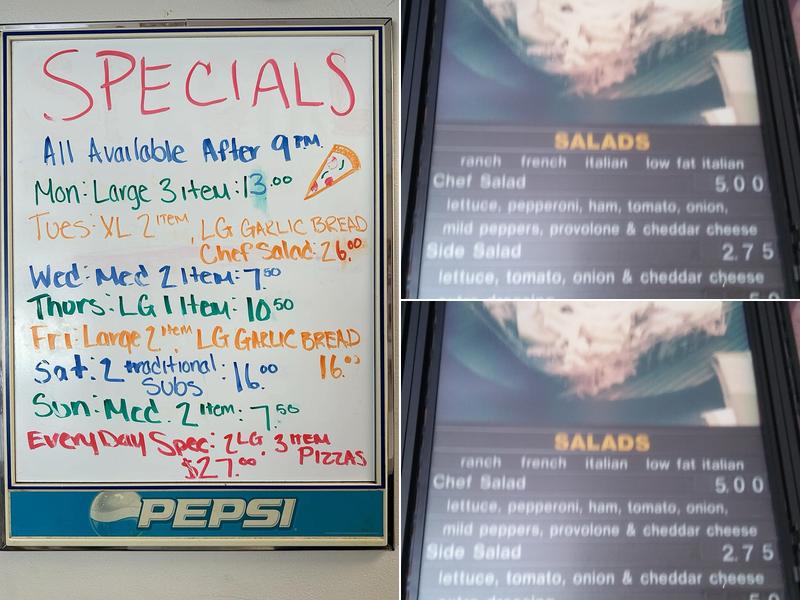 SPECIALS
All Available After 9 PM.
Mon: Large 3 item: 13.00
Tues: XL 2 ITEM, LG GARLIC BREAD
Chef Salad: 26.00
Wed: Med 2 Item: 7.50
Thors: LG 1 Item: 10.50
Fri: Large 2 Item, LG GARLIC BREAD
16.00
Sat: 2 traditional Subs: 16.00
Sun: Med. 2 Item: 7.50
Every Day Spec: 2 LG. 3 ITEM
$27.00 PIZZAS
PEPSI
SALADS
ranch french italian low fat italian
Chef Salad 5.00
lettuce, pepperoni, ham, tomato, onion,
mild peppers, provolone & cheddar cheese
Side Salad 2.75
lettuce, tomato, onion & cheddar cheese
SALADS
ranch french italian low fat italian
Chef Salad 5.00
lettuce, pepperoni, ham, tomato, onion,
mild peppers, provolone & cheddar cheese
Side Salad 2.75
lettuce, tomato, onion & cheddar cheese